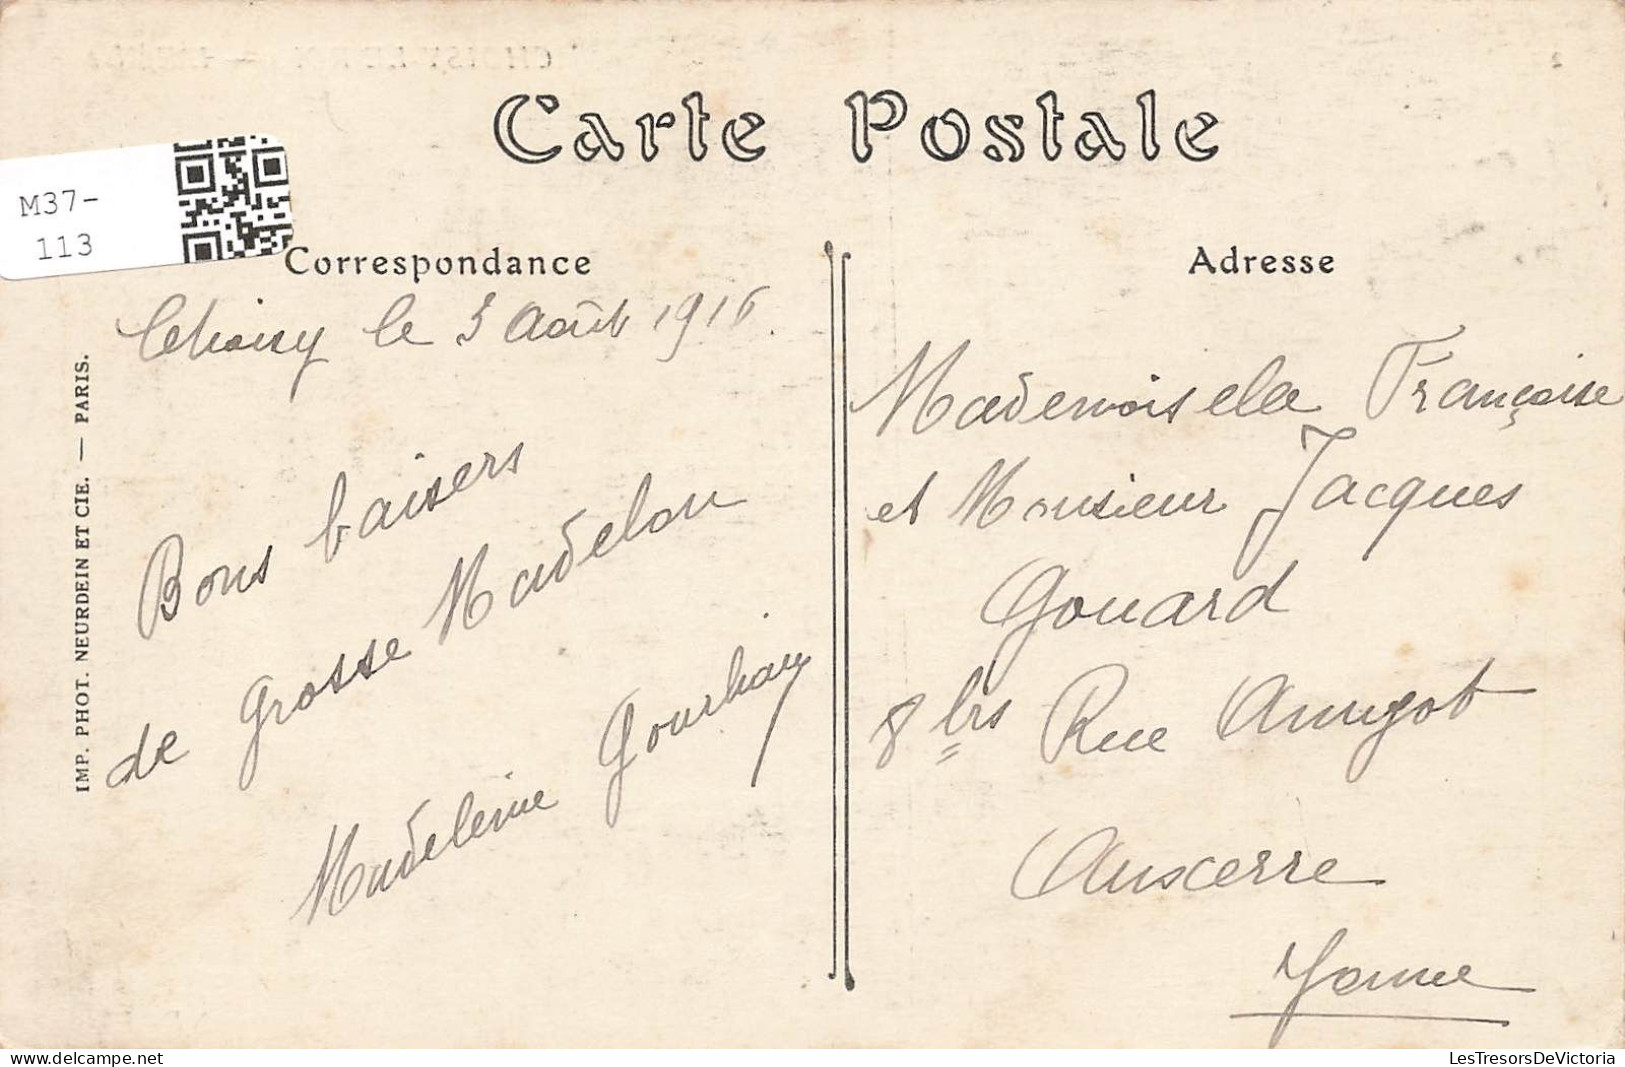 Carte Postale
M37-
113
Correspondance
Choisy le 5 Août 1916.
Bons baisers
de grosse Madelon
Madeleine
IMP. PHOT. NEURDEIN ET CIE. — PARIS.
Adresse
Mademoiselle Françoise
et Monsieur Jacques
Gouard
8 bis Rue Amyot
Auxerre
Yonne
LesTresorsDeVictoria